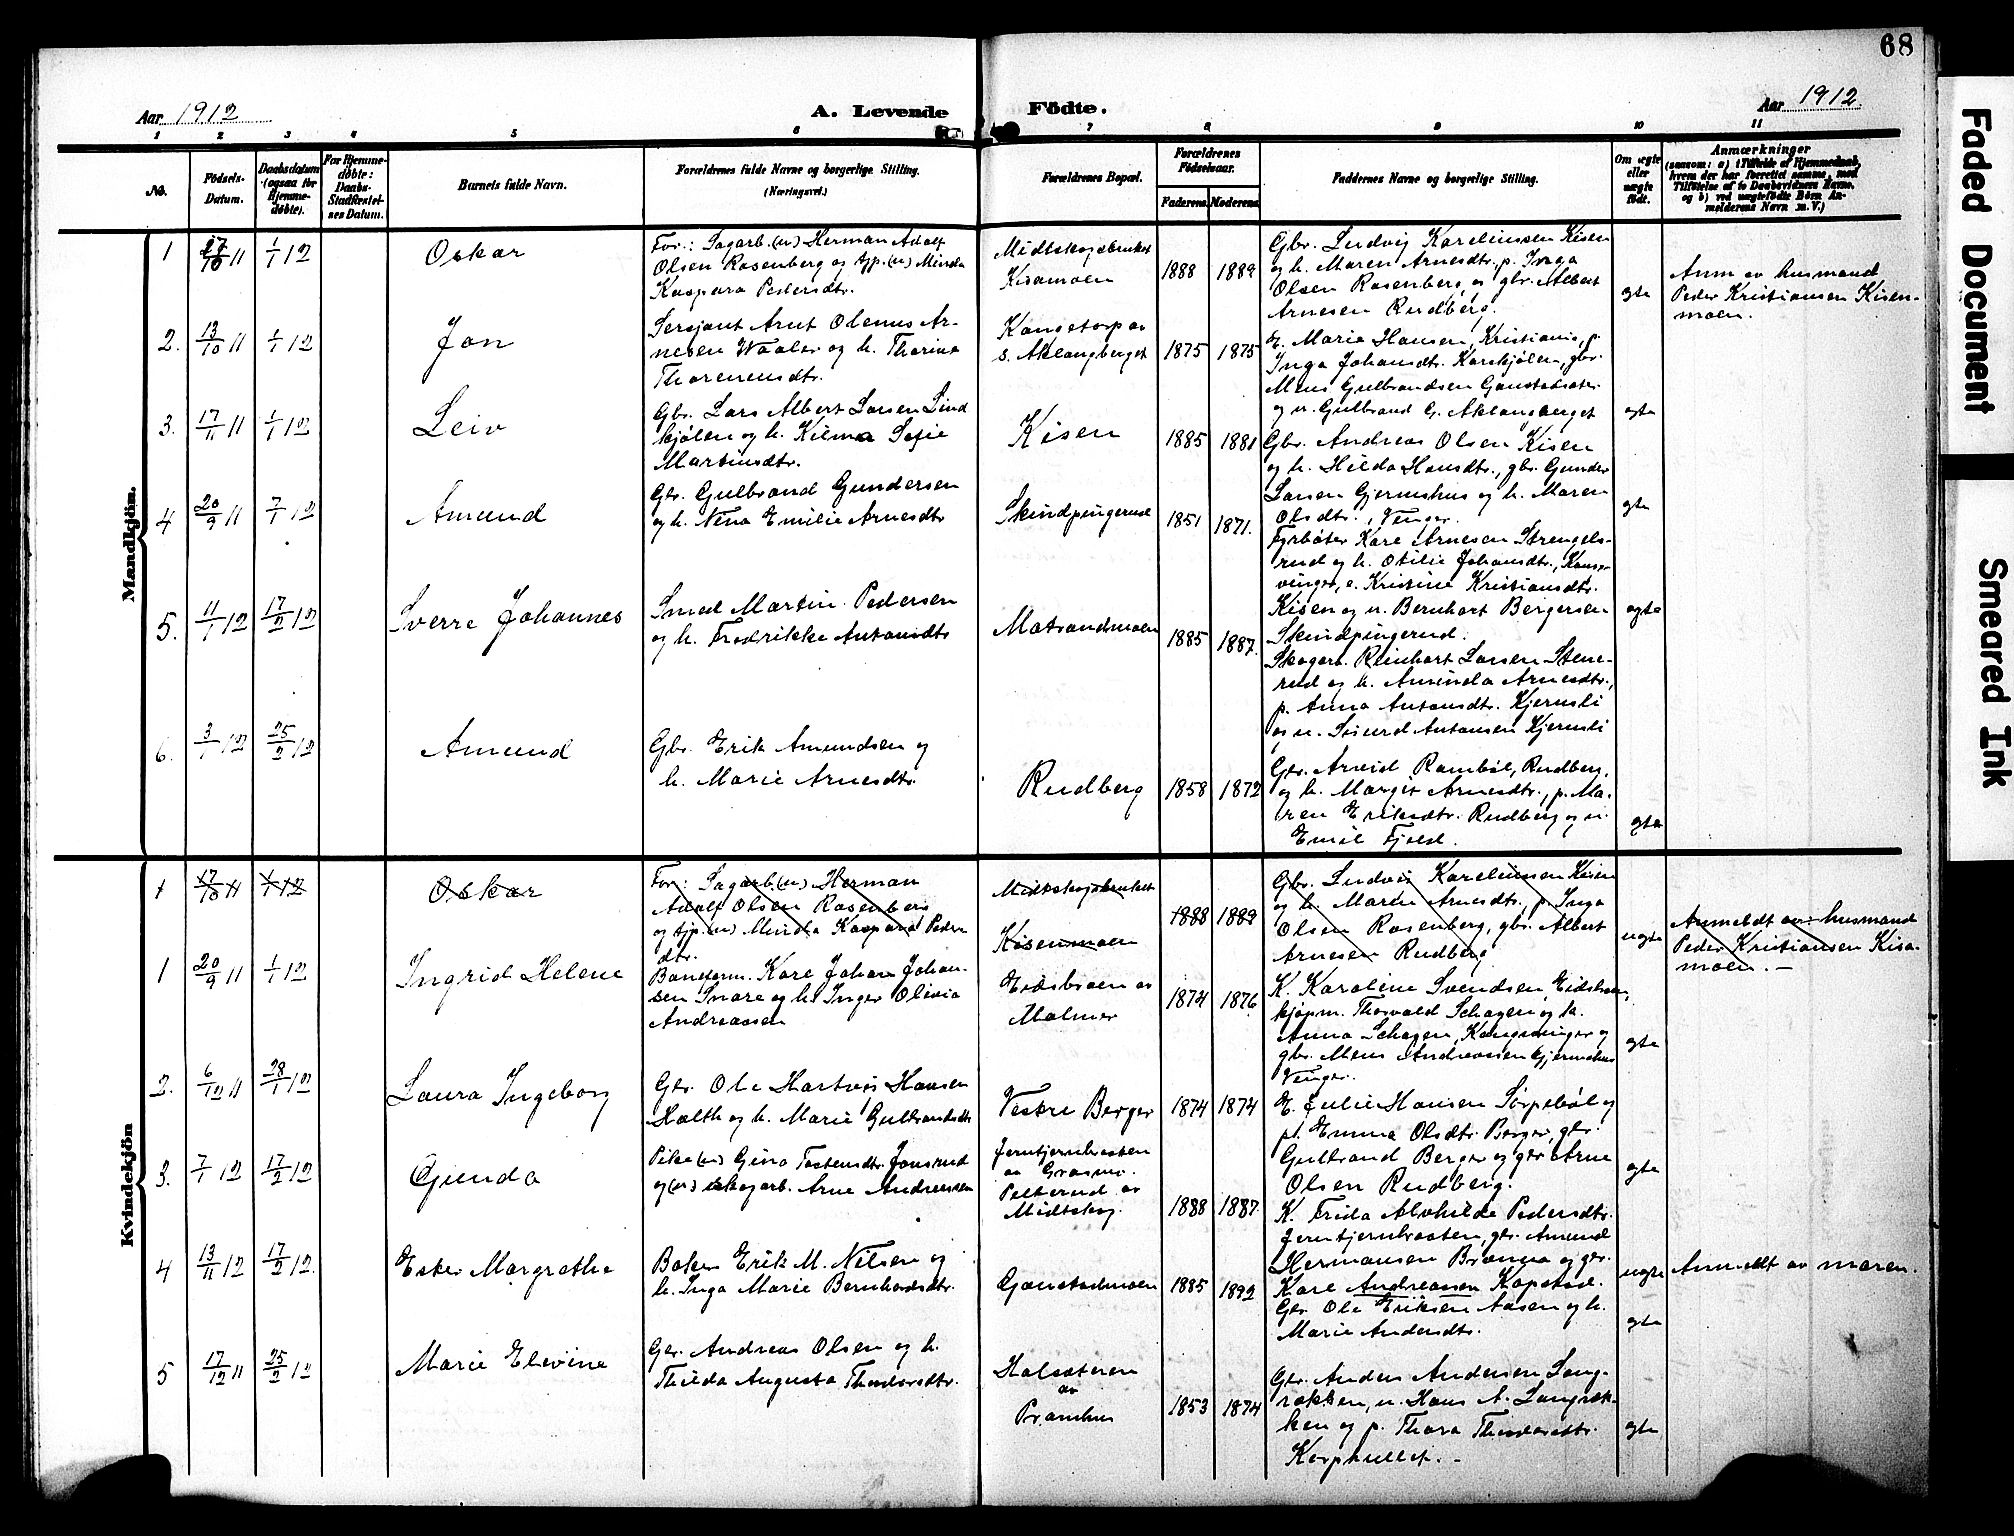 68
Aar 1912
A. Levende
Födte.
Aar 1912.
Faded Document
Smeared Ink
1 2 3 4 5 6 7 8 9 10 11
No.
Födsels-
Datum.
Daabsdatum
(ogsaa for
Hjemme-
døbte).
For Hjemme-
døbte:
Daabs-
Stadfæstel-
ses Datum.
Barnets fulde Navn.
Forældrenes fulde Navne og borgerlige Stilling.
(Næringsvei.)
Forældrenes Bopæl.
Forældrenes
Födselsaar.
Faderens. Moderens.
Faddernes Navne og borgerlige Stilling.
Om ægte
eller
uægte
født.
Anmærkninger
(saasom: a) i Tilfælde af Hjemmedaab,
hvem der har forrettet samme, med
Tilföielse af to Daabsvidners Navne,
og b) ved uægtefödte Börn An-
melderens Navn m. V.)
Mandkjön.
1 17/10 11 1/1 12
Oskar
For.: Sagarb. (u) Herman Adolf
Olsen Rosenberg og tjp. (u) Minda
Kaspara Pedersdtr.
Midtskogsbruket
Kisamoen
1888 1889
Gbr. Ludvig Kareliussen Kisen
og h. Maren Arnesdtr., p. Inga
Olsen Rosenberg, og gbr. Albert
Arnesen Rudberg.
ægte
Anm av husmand
Peder Kristiansen Kisen-
moen.
2. 13/10 11 1/1 12
Jon
Sersjant Arnt Olenus Ar-
nesen Waaler og h. Thorina
Thorenensdtr.
Kongetorp av
s. Aklangberget
1875 1875
E. Marie Hansen, Kristiania, p.
Inga Johansdtr. Karskjølen, gbr.
Mons Gulbrandsen Gaustadsæter
og u. Gulbrand G. Aklangberget
ægte
3. 17/11 11 1/1 12
Leiv
Gbr. Lars Albert Larsen Lind
kjølen og h. Kilma Sofie
Martinsdtr.
Kisen
1885 1881
Gbr. Andreas Olsen Kisen
og h. Hilda Hansdtr., gbr. Gunder
Larsen Gjermshus og h. Maren
Olsdtr., Venger.
ægte
4 20/9 11 7/1 12
Amund
Gbr. Gulbrand Gundersen
og h. Nena Emilie Arnesdtr
Skindpingerud
1851 1871.
Fyrbøter Kare Arnesen Strengels-
rud og h. Otilie Johansdtr., Kongs-
vinger, e. Kristine Kristiansdtr.
Kisen og u. Bernhart Bergersen
Skindpingerud.
ægte
5. 11/1 12 17/2 12
Sverre Johannes
Smed Martin Pedersen
og h. Fredrikke Antonsdtr
Matrandsmoen
1885 1887.
Skogarb. Reinhart Larsen Stene-
rud og h. Aminda Arnesdtr.,
p. Anna Antonsdtr. Kjernsli
og u. Sigurd Antonsen Kjernsli
6. 3/1 12 25/2 12
Amund
Gbr. Erik Amundsen og
h. Marie Arnesdtr.
Rudberg
1858 1872
Gbr. Arvid Rambøl, Rudberg,
og h. Margit Arnesdtr., p. Ma-
ren Eriksdtr. Rudberg og u.
Emil Fjeld.
ægte
Kvindekjön
1 17/10 11 1/1 12
Oskar
For: Sagarb. (u) Herman
Adolf Olsen Rosenberg
og tjp. (u) Minda Kaspara Peders
dtr.
Midtskogsbruket
Kisenmoen
1888 1889
Gbr. Ludvig Kareliussen Kisen
og h. Maren Arnesdtr., p. Inga
Olsen Rosenberg, gbr. Albert
Arnesen Rudberg
uægte
Anmeldt av husmand
Peder Kristiansen Kisa-
moen. –
1 20/9 11 1/1 12
Ingrid Helene
Baneform. Kare Johan Johan-
sen Snare og h. Inger Olivia
Andreassen
Eidsbroen av
Malmer
1874 1876
K. Karoline Svendsen, Eidsbroen,
kjøpm. Thorvald Schagen og h.
Anna Schagen, Kongsvinger og
gbr. Mons Andreassen Gjermshus
Venger.
ægte
2. 6/12 11 28/1 12
Laura Ingeborg
Gbr. Ole Hartvig Hansen
Holth og h. Marie Gulbrandsdtr
Vestre Berger
1874 1874
E. Julie Hansen Sørpebøl og
p. Emma Olsdtr. Berger, gbr.
Gulbrand Berger og gbr Arne
Olsen Rudberg.
ægte
3. 7/1 12 17/2 12
Gunda
Pike (u) Gina Tostensdtr. Jonsrud
og (u) skogarb. Arne Andreassen
Jerntjernbraaten
av Grasmo.
Pelterud av
Midtskog.
1888 1887
K. Frida Alvhilde Pedersdtr.
Jerntjernbraaten, gbr. Amund
Hermansen Brænna og gbr.
Kare Andreassen Kapstad.
uægte
Anmeldt av moren.
4 13/11 12 17/2 12.
Ester Margrethe
Baker Erik M. Nilsen og
h. Inga Marie Bernhardsdtr.
Gaustadmoen
1885 1892
Gbr Ole Eriksen Aasen og h.
Marie Andersdtr.
ægte
5 17/12 11 25/2 12
Marie Elevine
Gbr. Andreas Olsen og h.
Thilda Augusta Theodorsdtr.
Halsæteren
av
Pramhus
1853 1874
Gbr. Anders Andersen Lang-
rækken, u. Hans A. Langræk-
ken og p. Thora Theodorsdtr.
Korphullet. –
ægte